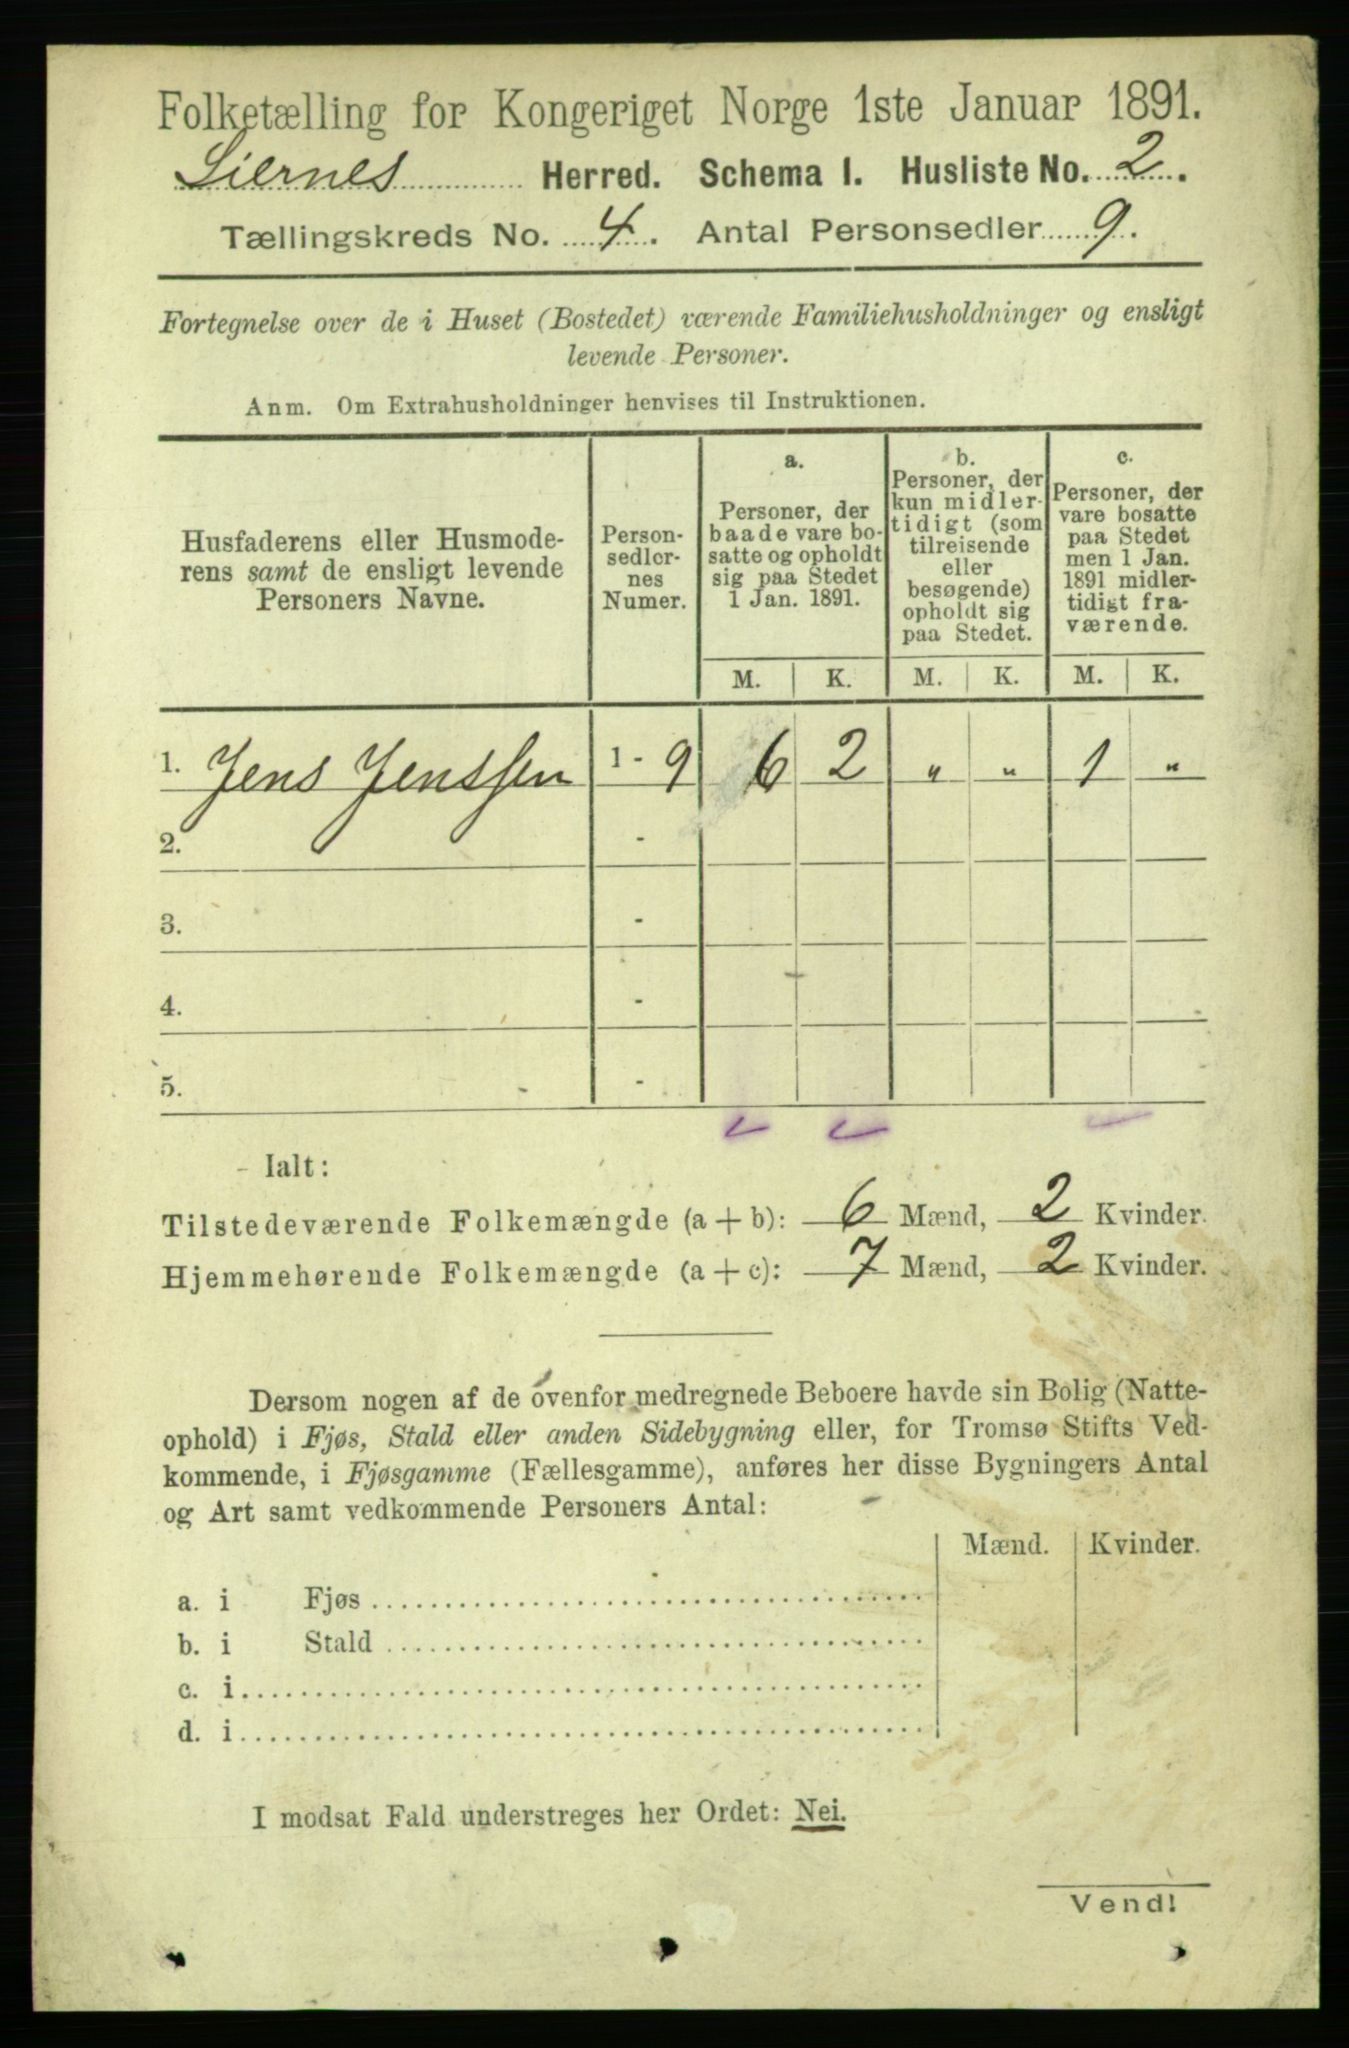 Folketælling for Kongeriget Norge 1ste Januar 1891.
Liernes Herred. Schema I. Husliste No. 2.
Tællingskreds No. 4. Antal Personsedler 9.
Fortegnelse over de i Huset (Bostedet) værende Familiehusholdninger og ensligt
levende Personer.
Anm. Om Extrahusholdninger henvises til Instruktionen.
Husfaderens eller Husmode-
rens samt de ensligt levende
Personers Navne.
Person-
sedler-
nes
Numer.
a.
Personer, der
baade vare bo-
satte og opholdt
sig paa Stedet
1 Jan. 1891.
b.
Personer, der
kun midler-
tidigt (som
tilreisende
eller
besøgende)
opholdt sig
paa Stedet.
c.
Personer, der
vare bosatte
paa Stedet
men 1 Jan.
1891 midler-
tidigt fra-
værende.
M. K. M. K. M. K.
1. Jens Jenssen 1 - 9 6 2 " " 1 "
2. -
3. -
4. -
5. -
Ialt:
Tilstedeværende Folkemængde (a + b): 6 Mænd, 2 Kvinder.
Hjemmehørende Folkemængde (a + c): 7 Mænd, 2 Kvinder.
Dersom nogen af de ovenfor medregnede Beboere havde sin Bolig (Natte-
ophold) i Fjøs, Stald eller anden Sidebygning eller, for Tromsø Stifts Ved-
kommende, i Fjøsgamme (Fællesgamme), anføres her disse Bygningers Antal
og Art samt vedkommende Personers Antal:
Mænd. Kvinder.
a. i Fjøs
b. i Stald
c. i
d. i
I modsat Fald understreges her Ordet: Nei.
Vend!